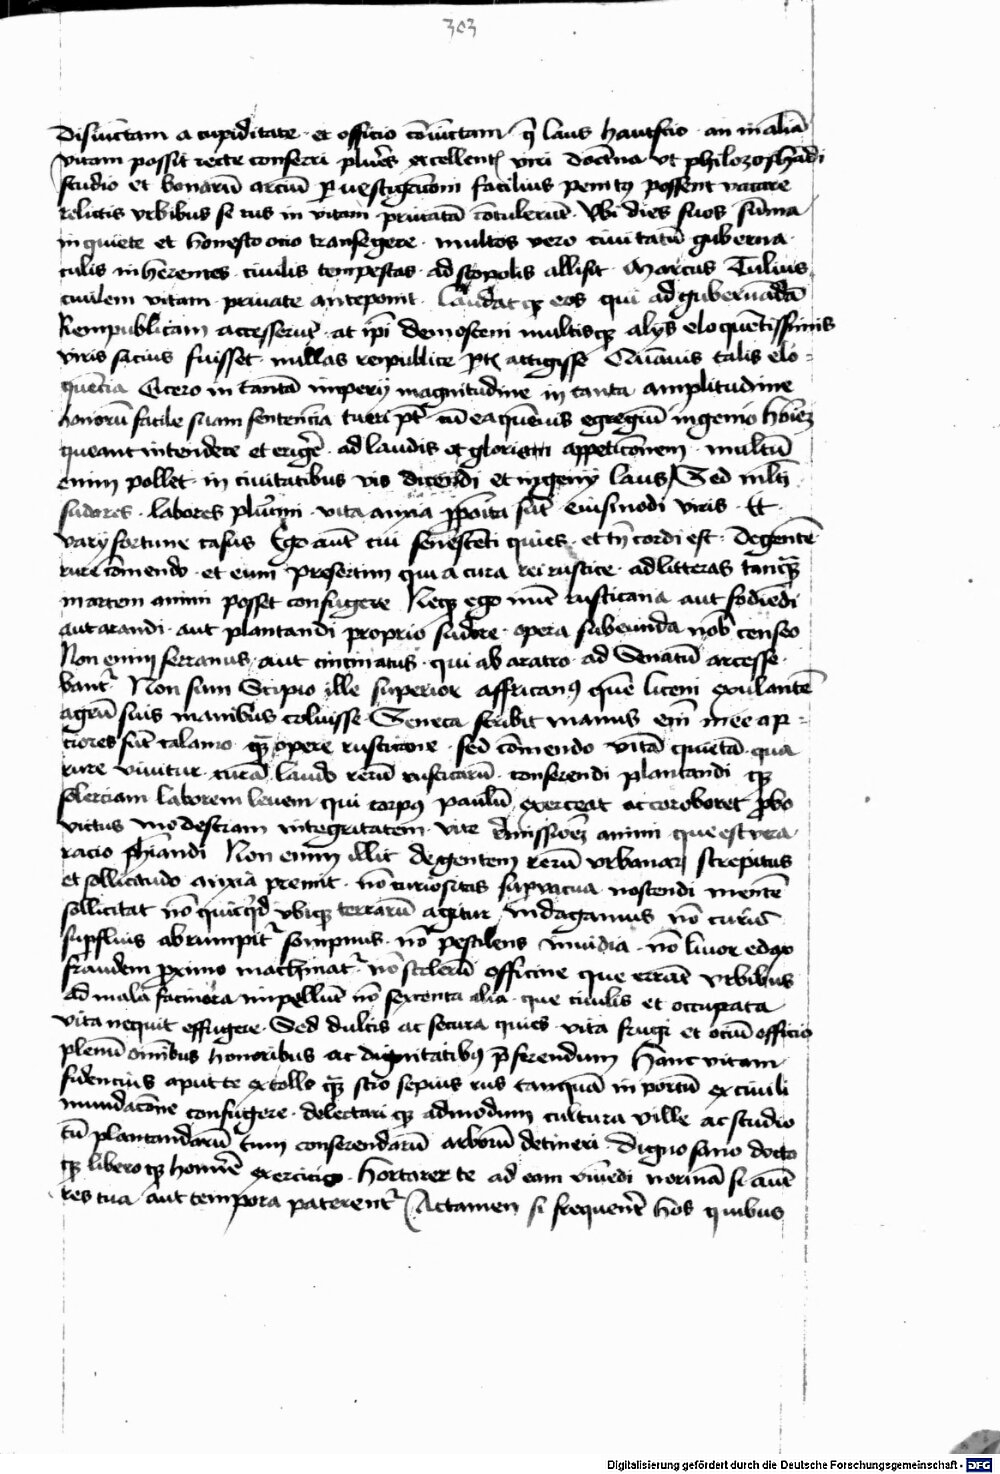 303
Disiūctam a cupiditate · et officio cōiūctam · q̄ laus hautscio · an in aliā
vitam possit recte conferri plures excellentes viri doctrina vt philozophādi
studio et bonarū arciū peruestigacioni facilius penitus possent vacare
relictis vrbibus se rus in vitam priuatā cōtulerūt · Vbi dies suos sūma
in quiete et honesto ocio transegere · multos vero ciuitatū guberna
culis inherentes · ciuilis tempestas · ad scopolis allisit · Marcus Tulius
ciuilem vitam · priuate anteponit · laudatqȝ eos qui ad gubernādā
Rempublicam accesserūt · at ipi demosteni multisqȝ alijs eloquētissimis
viris sacius fuisset · nullas reipublice ptes attigisse Quāuis talis elo=
quēcia Cicero in tantā imperij magnitudine in tanta amplitudine
honorū facile suam sentencia tueri pt · cū ea quēuis egregiū ingenio hoīez
queant intendere et erigere · ad laudis et gloriam appeticōnem · multū
enim pollet · in ciuitatibus vis dicendi et ingenij laus / Sed mlti
sudores · labores plurimi · vita anxia ppoita sūt eiusmodi viris · Et
varij fortune casus Ego aūt cui senescēti quies · et tn̄ cordi est · degentē
rure cōmendo · et eum presertim qui a cura rei rustice · ad litteras tanqȝ
in artem animi posset confugere Neqȝ ego nūc rusticana aut fodiēdi
aut arandi · aut plantandi proprio sudore · opera subeunda nob censeo
Non enim serranus · aut cincinatus · qui ab aratro · ad Senatū arcesse
bant Non sum Scipio ille superior affricanus quē liceni exulantē
agrū suis manibus coluisse · Seneca scribit manus em̄ mee ap=
ciores sūt calamo · qȝ opere rusticane · sed cōmendo vitā quietā qua
rure viuitur · curā laudo rerū rusticarū · conserendi plantandi qȝ
solerciam laborem leuem qui corpus paulū exerceat ac coroboret probo
victus modestiam integritatem vite dimissionez animi que est vera
racio phiandi Non enim illic degentem rerū vrbanarum strepitus
et sollicitudo anxia premit · nō curiositas supuacua noscendi mentē
sollicitat nō quicqd vbiqȝ terrarū agitur indagamus nō curis
supfluis abrumpit sompnus · nō pestilens inuidia · nō liuor edax
fraudem proximo machinat · nō scelerū officine que errāt vrbibus
ad mala facinora impellūt nō sexcenta alia · que ciuilis et occupata
vita nequit effugere · Sed dulcis ac secura quies · vita frugi et ociū officio
plenū omibus honoribus ac dignitatibus pferendum Hanc vitam
fidencius aput te extollo qȝ scio sepius rus tanquā in portū ex ciuili
inundacōne confugere · delectari qȝ admodum cultura ville ac studio
cū plantandarū tum conserendarū arborū detineri · Digno sano docto
qȝ libero qȝ homīe exercicio · Hortarer te ad eam viuēdi normā si aut
res tua aut tempora paterent Actamen si frequentes hos quibus
Digitalisierung gefördert durch die Deutsche Forschungsgemeinschaft - DFG